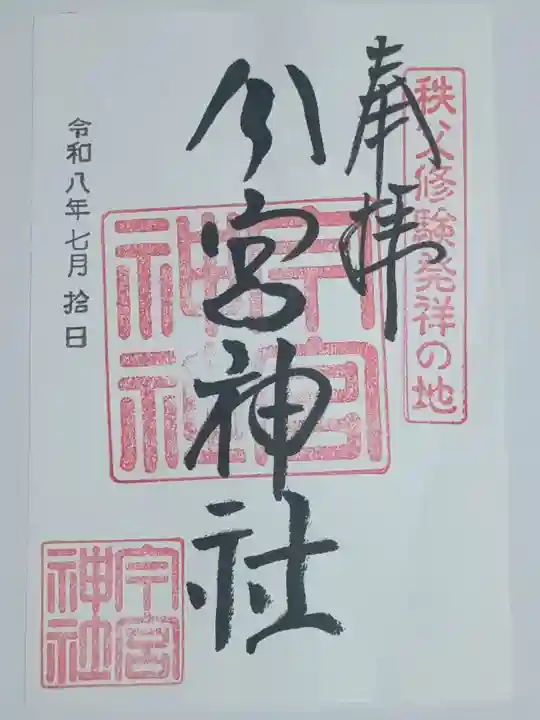 秩父修験発祥の地
奉拝
今宮神社
令和八年七月拾日
今宮神社
今宮神社